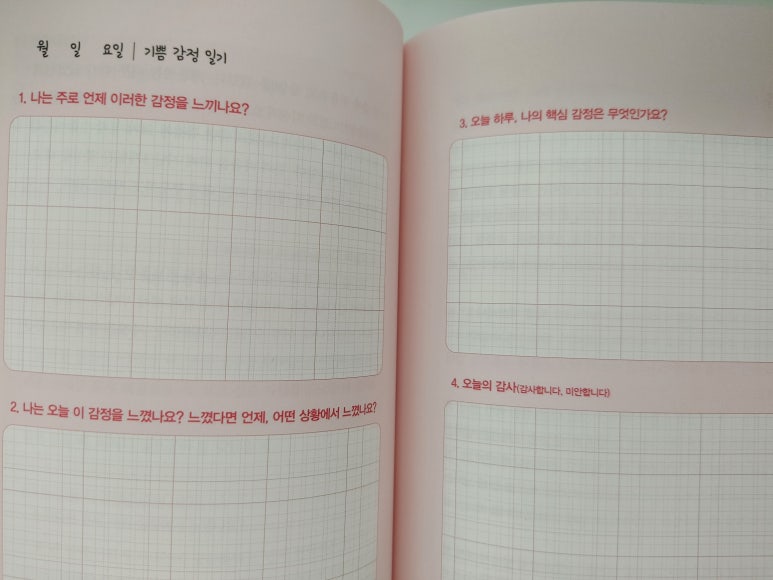 월 일 요일 | 기쁨 감정 일기
1. 나는 주로 언제 이러한 감정을 느끼나요?
2. 나는 오늘 이 감정을 느꼈나요? 느꼈다면 언제, 어떤 상황에서 느꼈나요?
3. 오늘 하루, 나의 핵심 감정은 무엇인가요?
4. 오늘의 감사(감사합니다, 미안합니다)